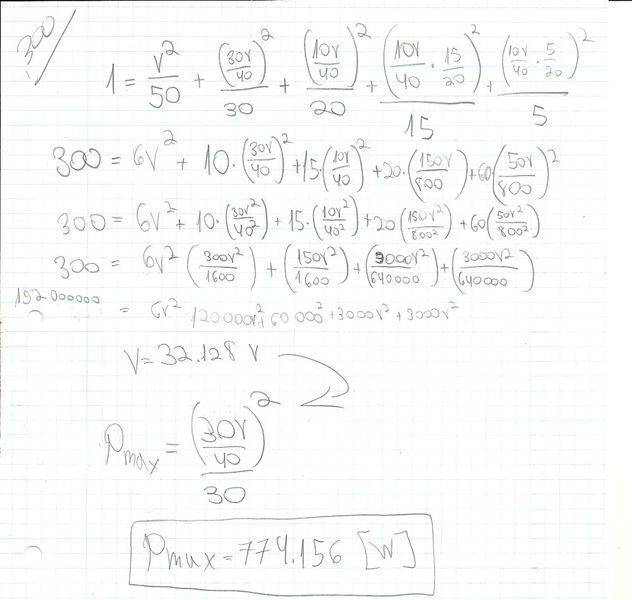 300
1 = V²/50 + (30V/40)²/30 + (10V/40)²/20 + (10V/40 · 15/20)²/15 + (10V/40 · 5/20)²/5
300 = 6V² + 10·(30V/40)² + 15·(10V/40)² + 20·(150V/800) + 60(50V/800)²
300 = 6V² + 10·(30V²/40²) + 15·(10V²/40²) + 20(150V²/800²) + 60(50V²/800²)
300 = 6V² (300V²/1600) + (150V²/1600) + (3000V²/640000) + (3000V²/640000)
192000000 = 6V² 120000V² + 60000² + 3000V² + 3000V²
V = 32.128 V
Pmax = (30V/40)²/30
Pmax = 774.156 [W]